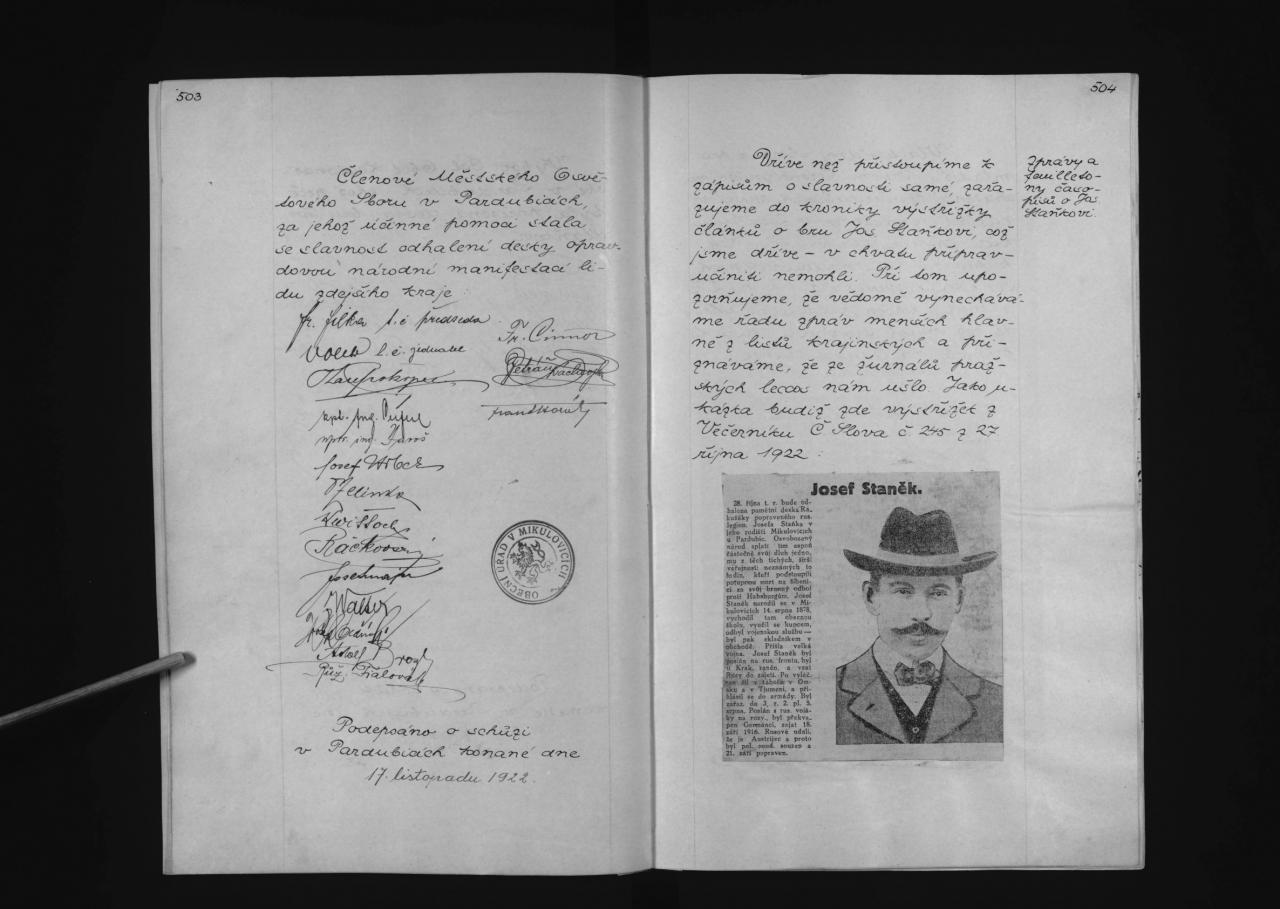 503
Členové Městského Osvě-
tového Sboru v Pardubicích,
za jehož účinné pomoci stala
se slavnost odhalení desky oprav-
dovou národní manifestací li-
du zdejšího kraje:
fr. Jilka t. č. předseda
t. č. jednatel
kpt. Ing.
Josef
Adolf
Fr.
OBECNÍ ÚŘAD V MIKULOVICÍCH
Podepsáno o schůzi
v Pardubicích konané dne
17. listopadu 1922.
504
Dříve než přistoupíme k
zápisům o slavnosti samé, zařa-
zujeme do kroniky výstřižky
článků o bru Jos. Staňkovi, což
jsme dříve - v chvatu příprav -
učiniti nemohli. Při tom upo-
zorňujeme, že vědomě vynechává-
me řadu zpráv menších hlav-
ně z listů krajinských a při-
znáváme, že ze žurnálů praž-
ských leccos nám ušlo. Jako u-
kázka budiž zde výstřižek z
Večerníku Č. Slova č. 245 z 27
října 1922:
Zprávy a
feuilleto-
ny časo-
pisů o Jos.
Staňkovi.
Josef Staněk.
28. října t. r. bude od-
halena pamětní deska Ra-
kušáky popraveného rus.
legion. Josefa Staňka v
jeho rodišti Mikulovicích
u Pardubic. Osvobozený
národ splatí tím aspoň
částečně svůj dluh jedno-
mu z těch tichých, širší
veřejnosti neznámých to
hrdin, kteří podstoupili
potupnou smrt na šibeni-
ci za svůj branný odboj
proti Habsburgům. Josef
Staněk narodil se v Mi-
kulovicích 14. srpna 1878,
vychodil tam obecnou
školu, vyučil se kupcem,
odbyl vojenskou službu —
byl pak skladníkem v
obchodě. Přišla velká
vojna. Josef Staněk byl
poslán na rus. frontu, byl
u Krak. raněn, a vzat
Rusy do zajetí. Po vyléč.
žil v táboře v Om-
sku a v Ťumeni, a při-
hlásil se do armády. Byl
zařaz. do 3. r. 2. pl. 5.
srpna. Poslán s rus. voják-
ky na rozv., byl překva-
pen Germánci, zajat 18.
září 1916. Rusové udali,
že je Austrijec a proto
byl pol. soud. souzen a
21. září popraven.